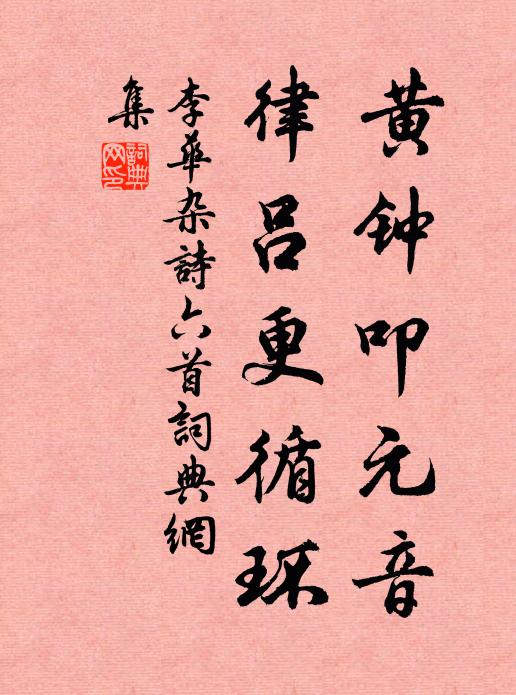 黄钟叩元音
律吕更循环
李華杂詩六首詞典網
集
詞典
网印